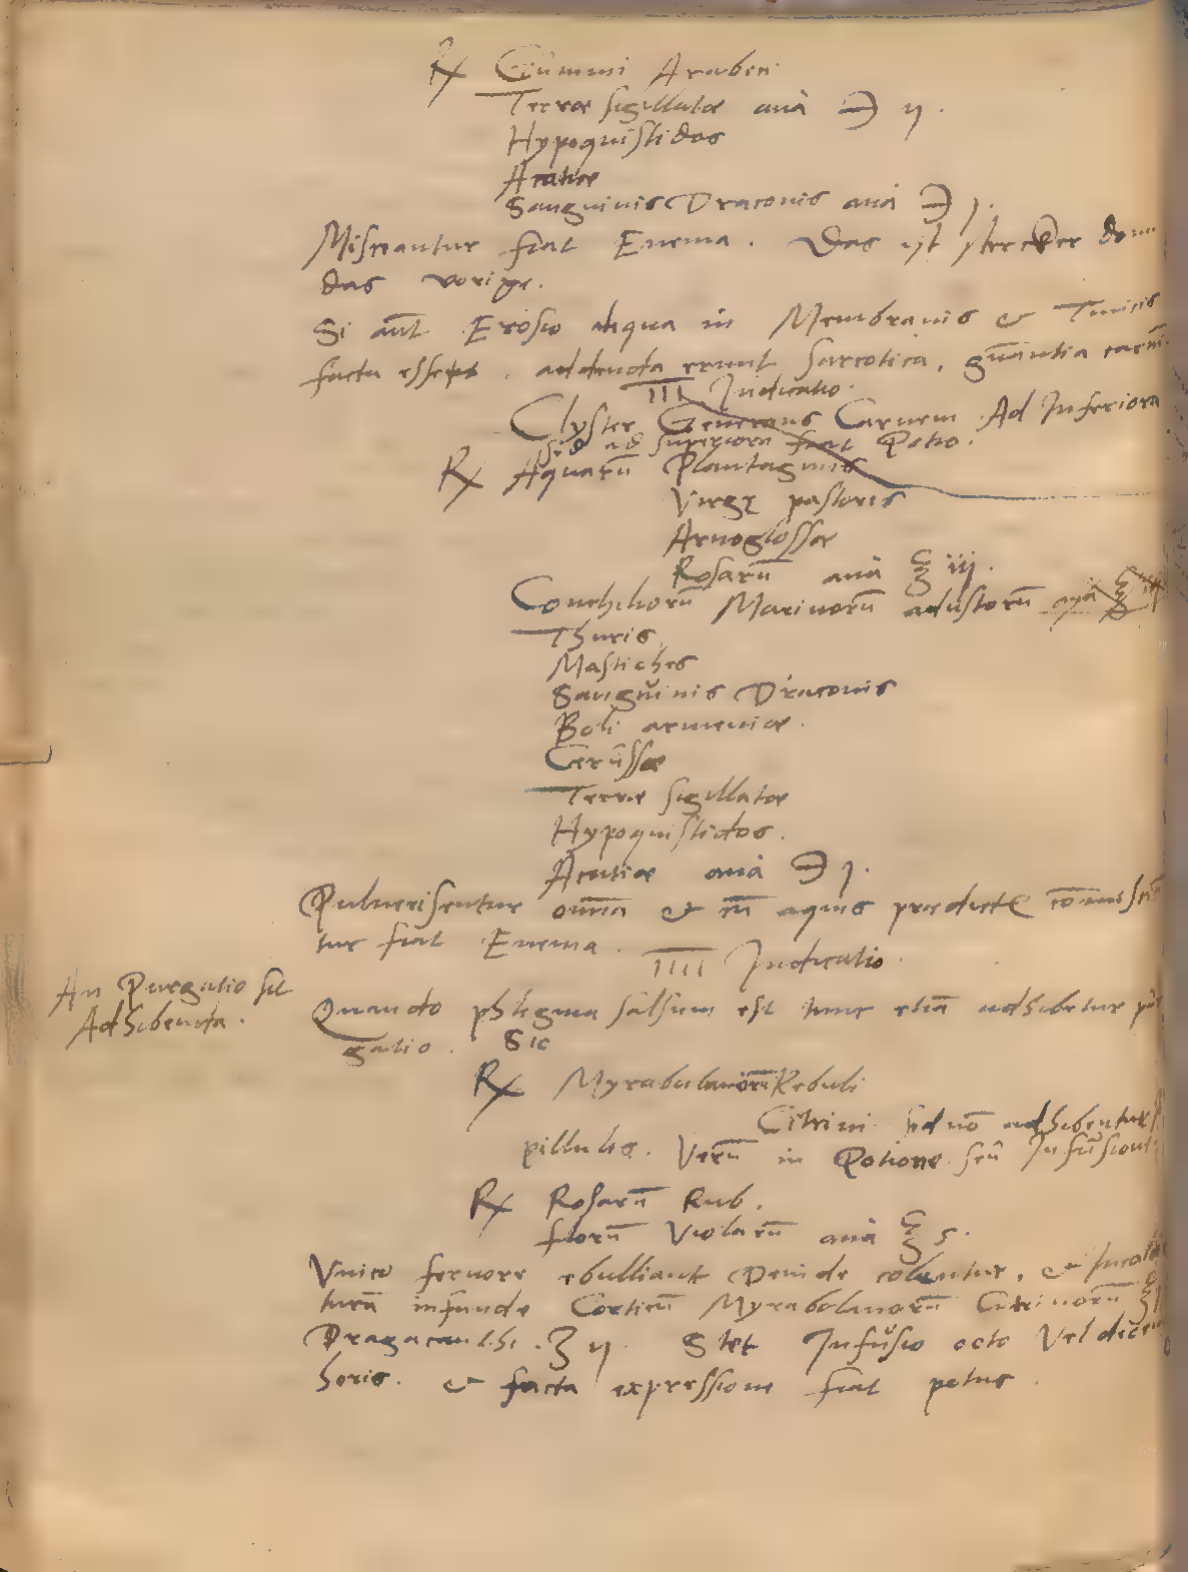 ℞ Gummi Arabici
Terræ sigillatæ anà ℈ ij.
Hypoquistidos
Acatiæ
Sanguinis Draconis anà ℈ j.
Misceantur fiat Enema. Das ist stercker
das vorige.
Si aūt Erosio aliqua in Membranis & Tunicis
facta esset, addenda erunt sarcotica,
III Indicatio.
Clyster Generans Carnem Ad Inferiora
sed ad superiora fiat Potio.
℞ Aquarū Plantaginis
Virgę pastoris
Arnoglossæ
Rosarū anà ℥ iij.
Conchiliorū Marinorū adustorū anà ℥
Thuris
Mastiches
Sanguinis Draconis
Boli armeniæ.
Cerussæ
Terræ sigillatæ
Hypoquistidos.
Acatiæ anà ℈ j.
Pulverisentur omīa & cū aquis prædictis
tur fiat Enema.
IIII Indicatio.
An Purgatio sit
Adhibenda.
Quando phlegma salsum est tunc etiā adhibetur pur
gatio. Sic
℞ Myrabulanorū Kebuli
Citrini sed nō adhibentur
pillulis. Verū in Potione seu Infusione
℞ Rosarū Rub.
florū Violarū anà ℥ s.
Unico fervore ebulliant Deinde colentur, &
turā infunde Corticū Myrabolanorū Citrinorū ℥
Dragacanthi. ʒ ij. Stet Infusio octo Vel decem
horis. & facta expressione fiat potus.